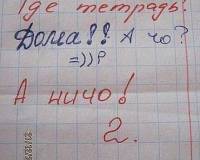 Где тетрадь?
Дома!! А чо?
=))Р
А ничо!
2.